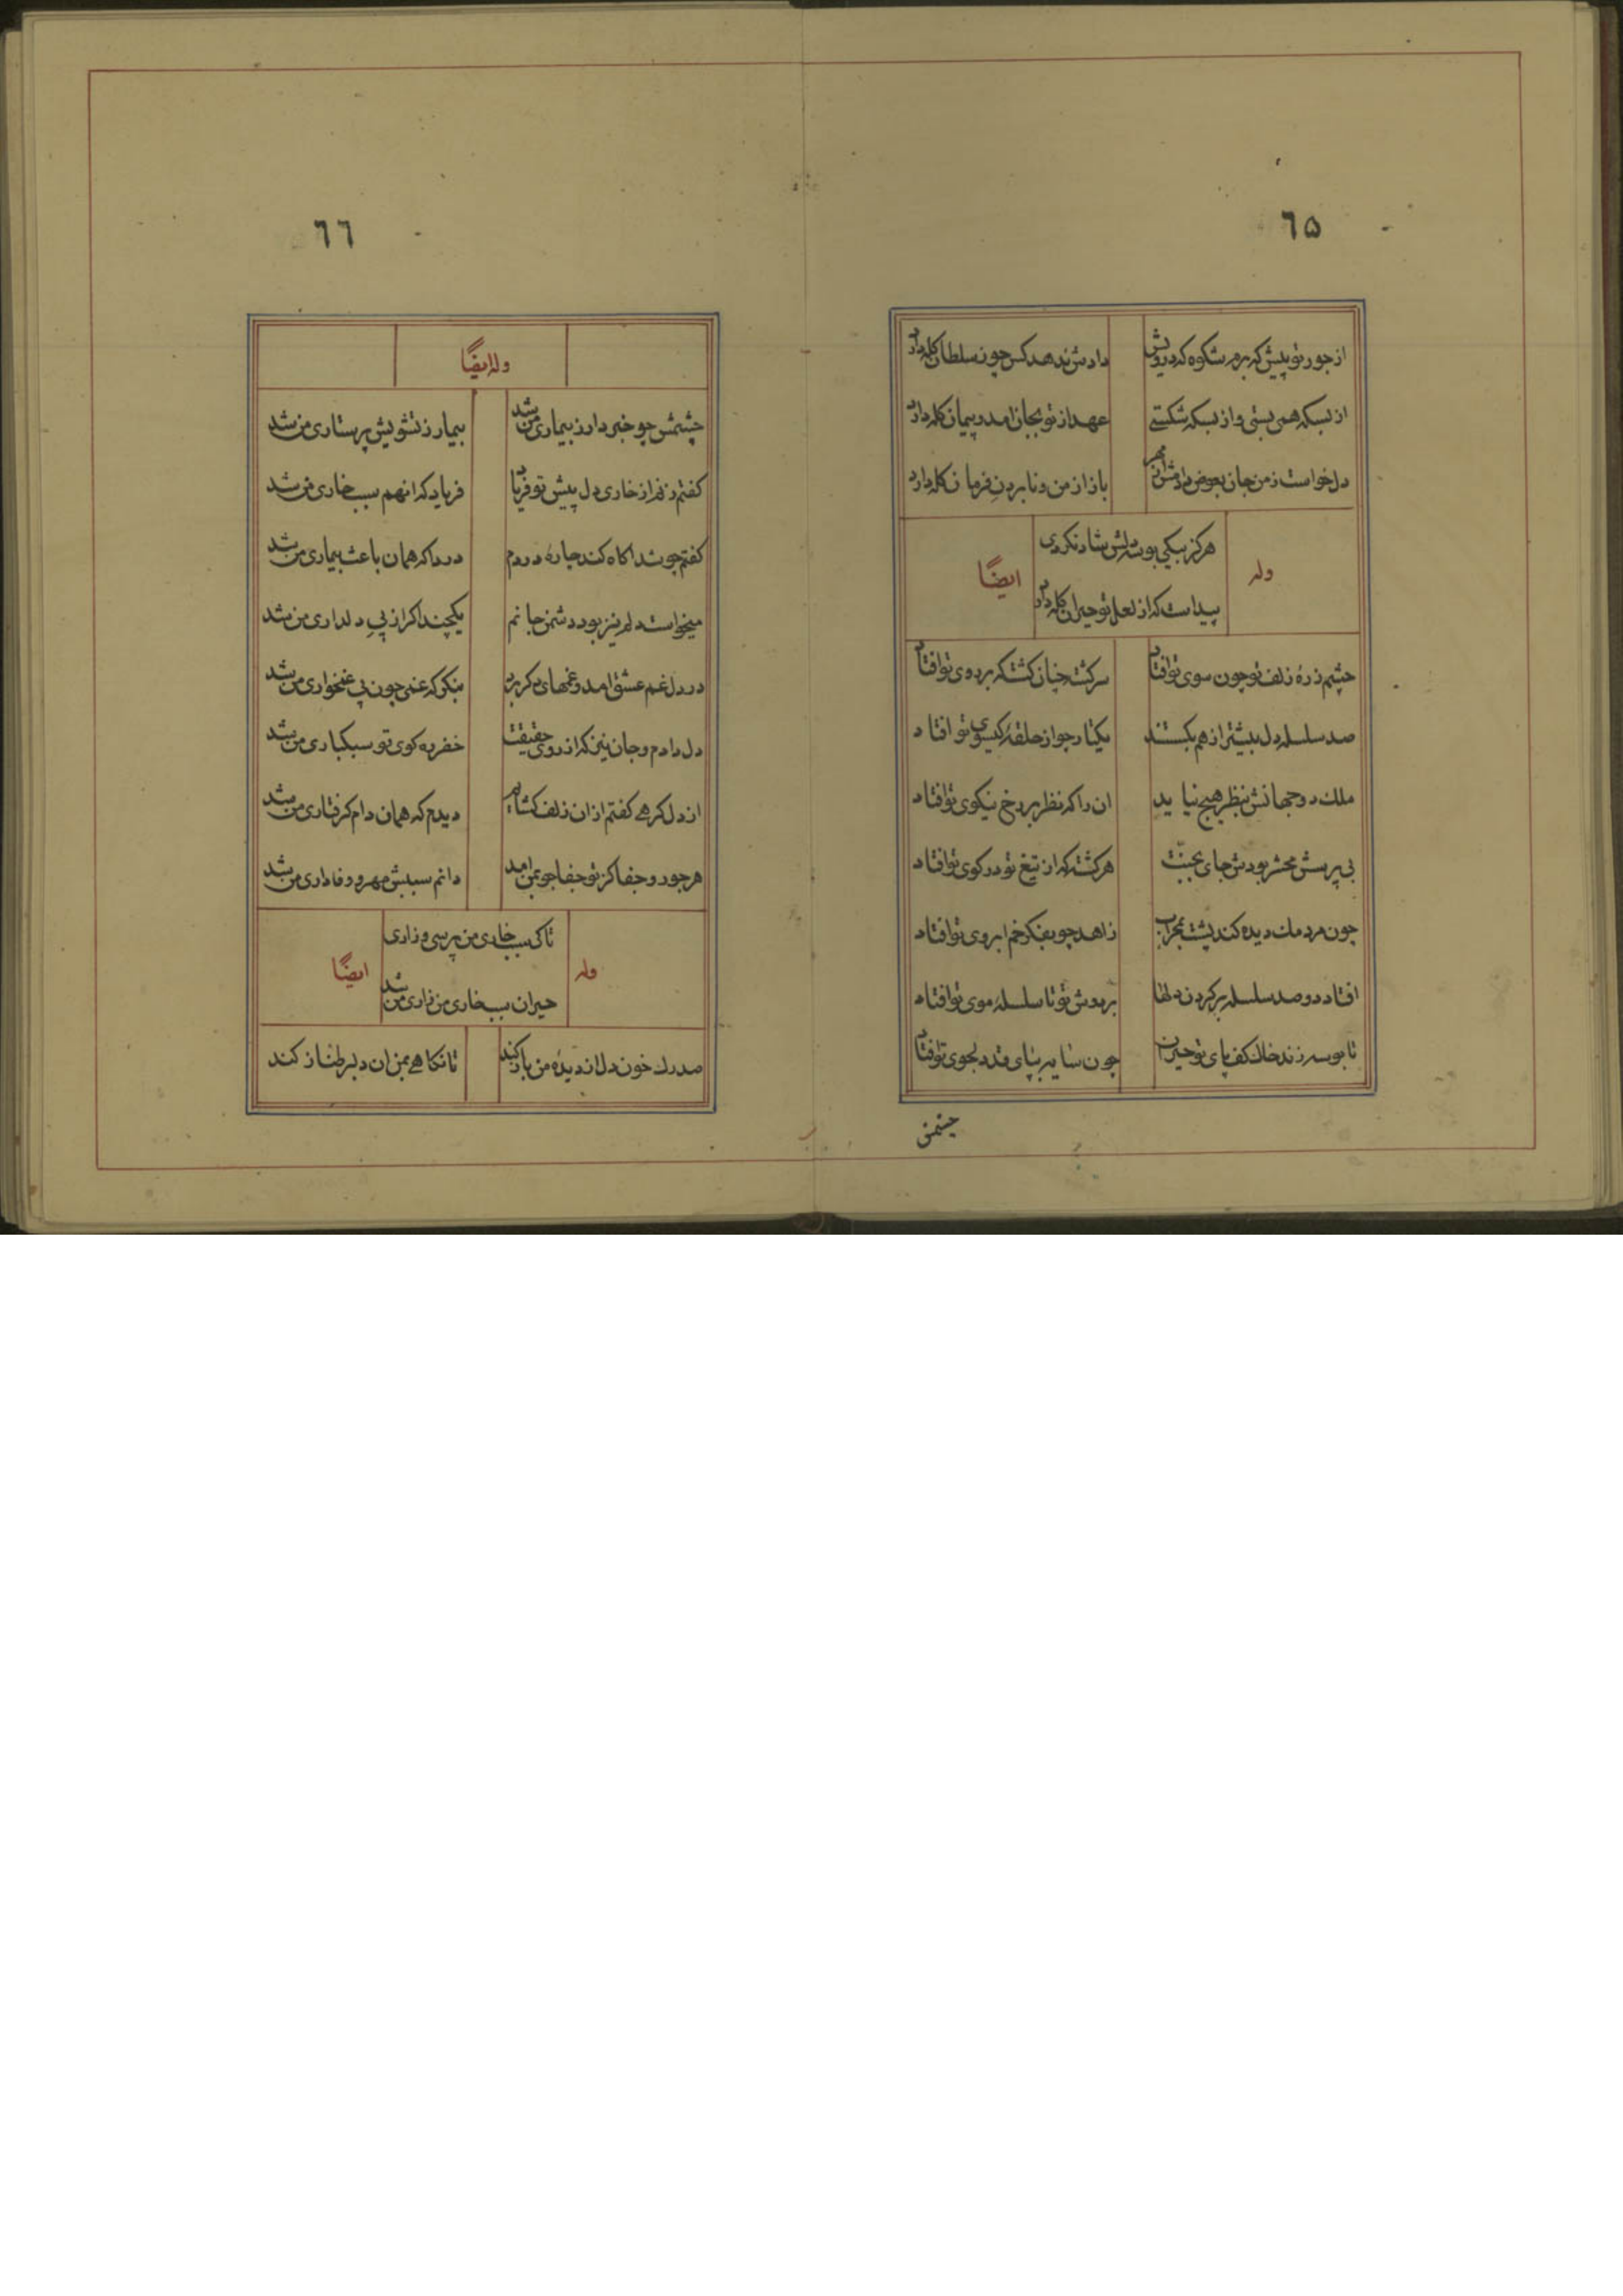 ٦۵
از جور تو پیش که برم شکوه که درویش
دادش ندهد کس چون سلطان کله دارد
از بسکه همی بستی و از بسکه شکستے
عهد از تو بجان امد و پیمان کله دارد
دل خواست ز من جان بعوض دادمش از مهر
باز از من و نابردن فرمان کله دارد
وله
هرکز بیکی بوسه دلش شاد نکردی
پیداست که از لعل تو حیران کله دارد
ایضًا
چشمم ز ره زلف تو چون سوی تو افتاد
سرکشته چنان کشت که بر روی تو افتاد
صد سلسله دل بیشتر از هم بکستند
یکتار چو از حلقهٔ کیسوی تو افتاد
ملک دو جهانش بنظر هیچ نیاید
ان را که نظر بر رخ نیکوی تو افتاد
بی پرسش محشر بودش جای بجنّت
هر کشته که از تیغ تو در کوی تو افتاد
چون مردمک دیده کند پشت بمحراب
زاهد چو بفکر خم ابروی تو افتاد
افتاد دو صد سلسله بر کردن دلها
بر دوش تو تا سلسلهٔ موی تو افتاد
تا بوسه زند خاک کف پای تو حیران
چون سایه بپای قد دلجوی تو افتاد
چشمش
٦٦
وله ایضًا
چشمش چو خبردار ز بیماری من شد
بیمار ز تشویش پرستاری من شد
کفتم زنم از خاری دل پیش تو فریاد
فریاد که انهم سبب خاری من شد
کفتم چو شد اکاه کند چارهٔ دردم
دردا که همان باعث بیماری من شد
میخواست دلم نیز بود دشمن جانم
یکچند اکر از پیِ دلداری من شد
در دل غم عشق امد و غمهای دکر برد
بنکر که غمی چون پی غمخواری من شد
دل دادم و جان نیز که از روی حقیقت
خضر ره کوی تو سبکباری من شد
از دل کرهے کفتم از ان زلف کشایم
دیدم که همان دام کرفتاری من شد
هر جور و جفا کز تو جفاجو بمن امد
دانم سببش مهر و وفاداری من شد
وله
تا کی سبب خاری من پرسی و زاری
حیران سبب خاری من زاری من شد
ایضًا
صد رک خون دل از دیدهٔ من باز کند
تا نکاهے بمن ان دلبر طناز کند